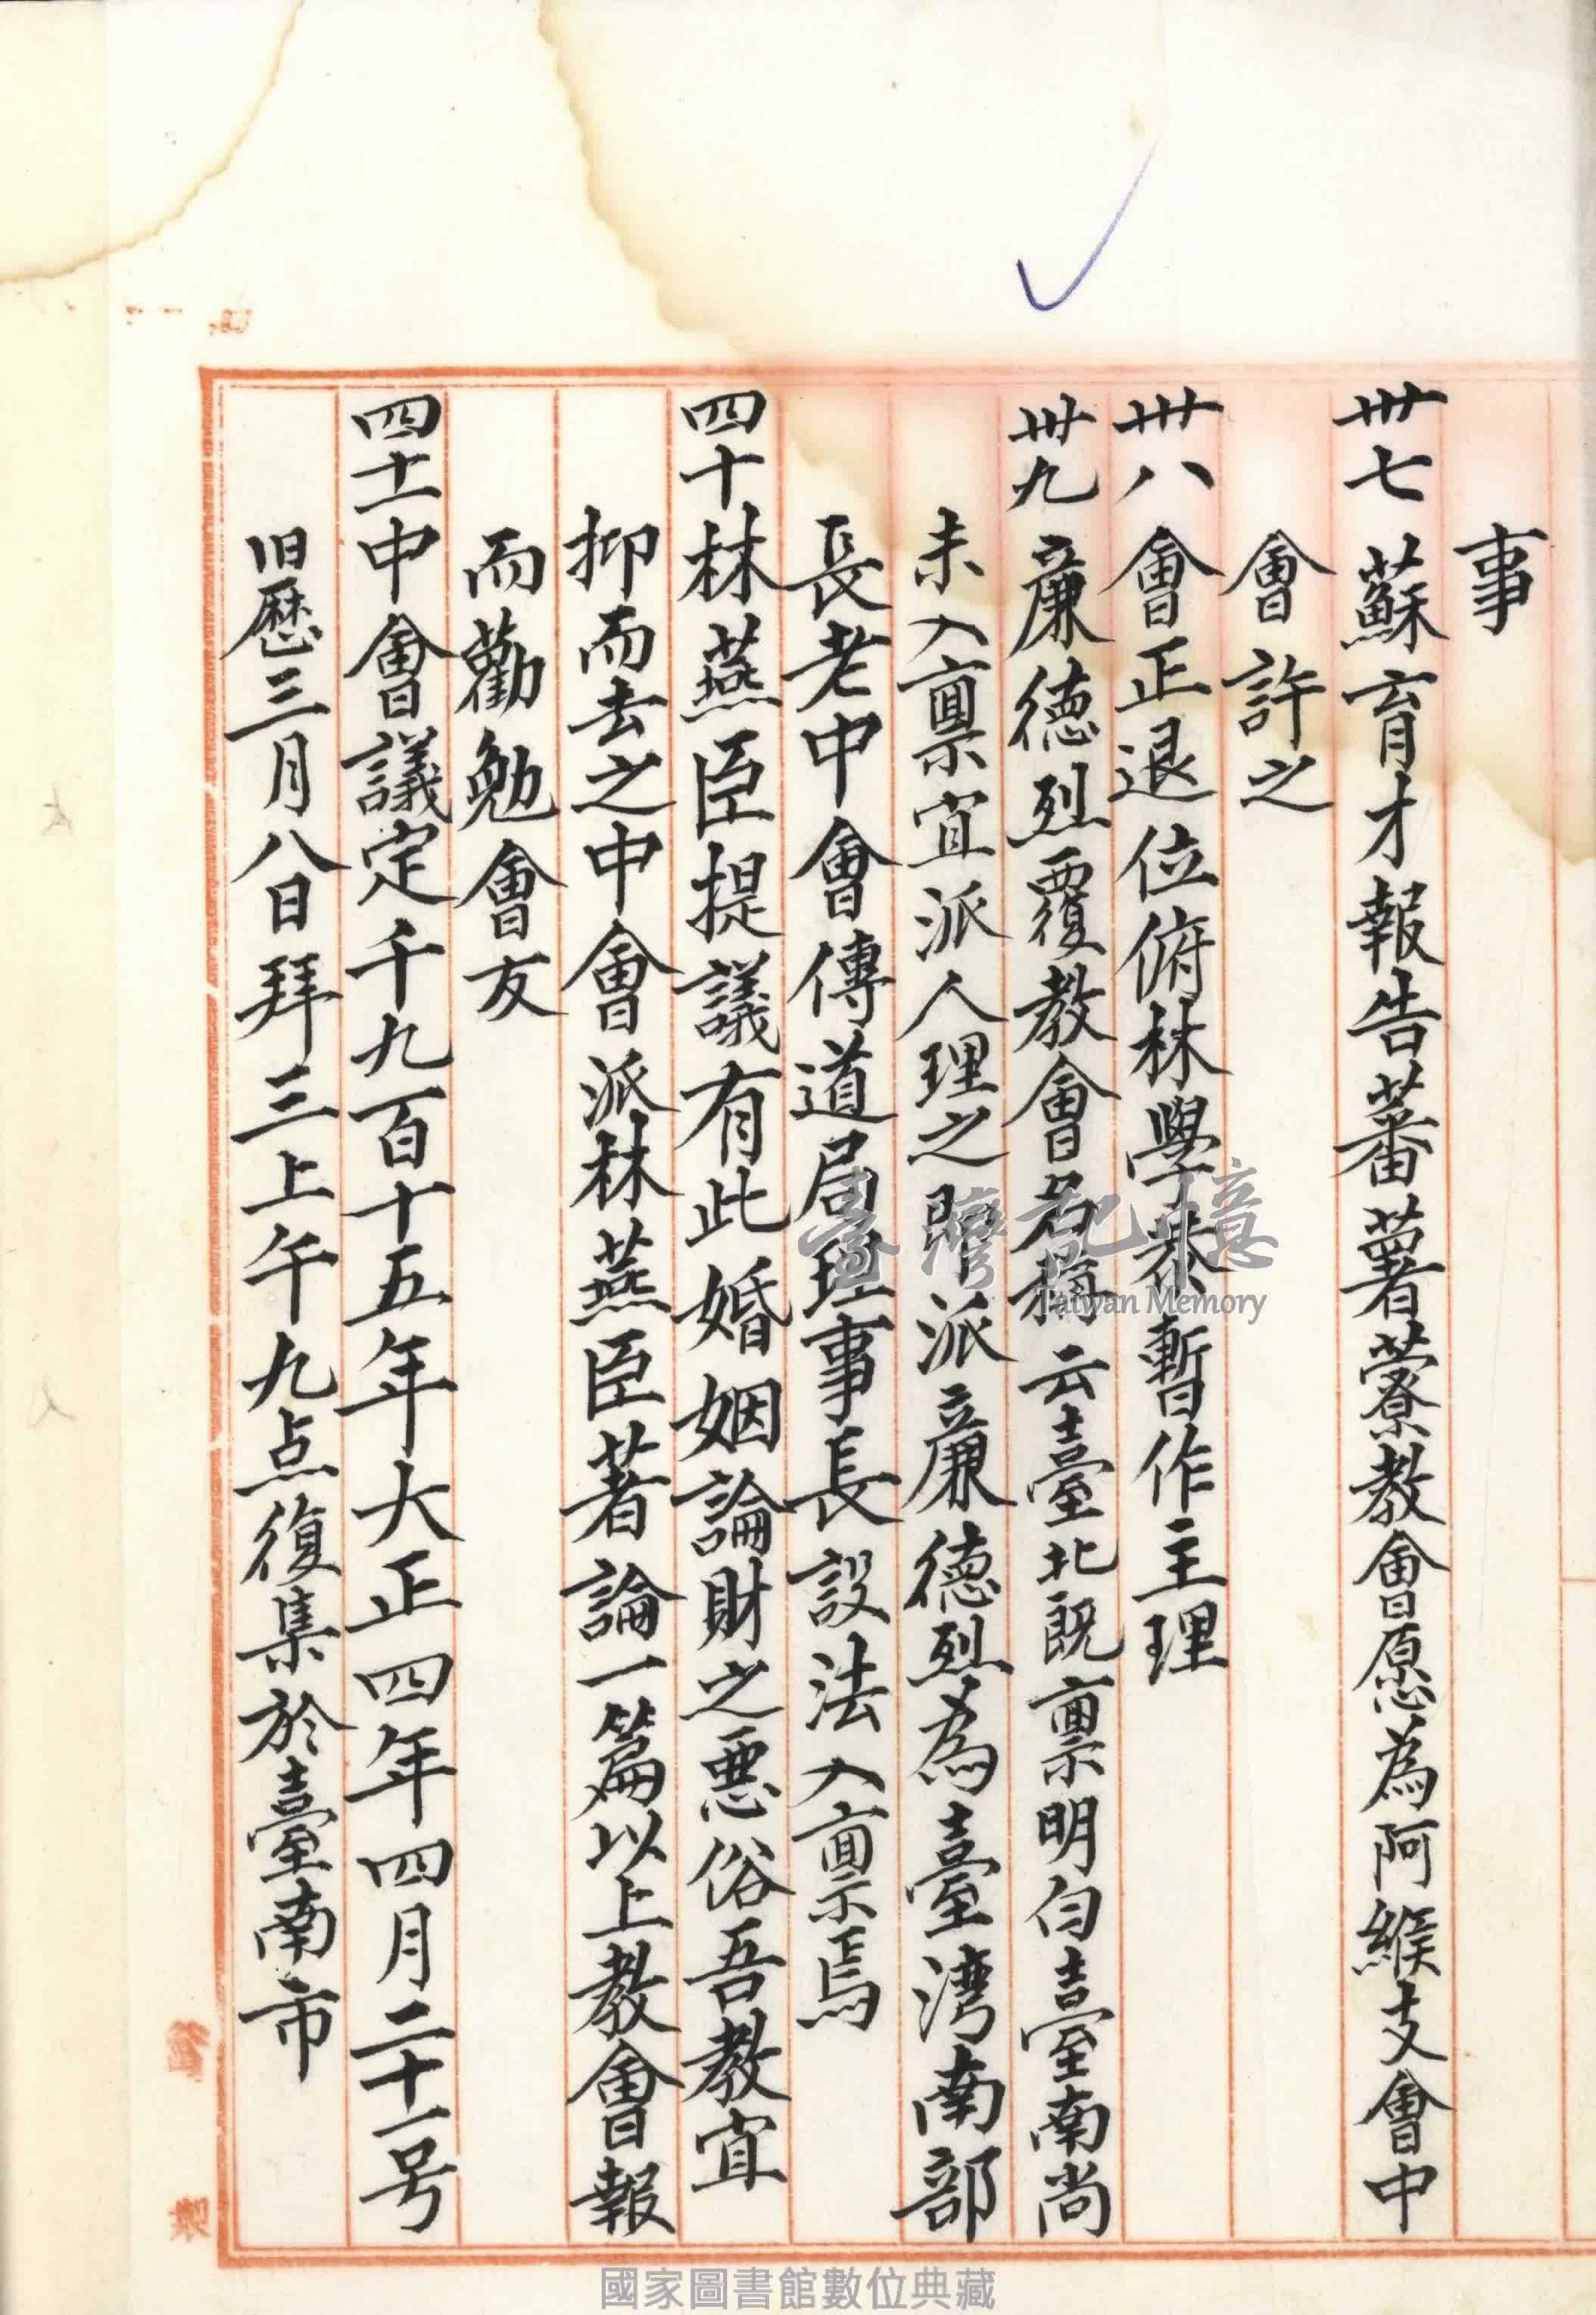 事
卅七 蘇育才報告蕃薯藔教會愿為阿緱支會中
會許之
卅八 會正退位俯林學恭暫作主理
卅九 廉德烈覆教會名稱云臺北既禀明白臺南尚
未入禀宜派人理之即派廉德烈為臺湾南部
長老中會傳道局理事長設法入禀焉
四十 林燕臣提議有此婚姻論財之悪俗吾教宜
抑而去之中會派林燕臣著論一篇以上教會報
而勸勉會友
四十一 中會議定千九百十五年大正四年四月二十一号
旧歷三月八日拜三上午九点復集於臺南市
臺灣記憶
Taiwan Memory
國家圖書館數位典藏